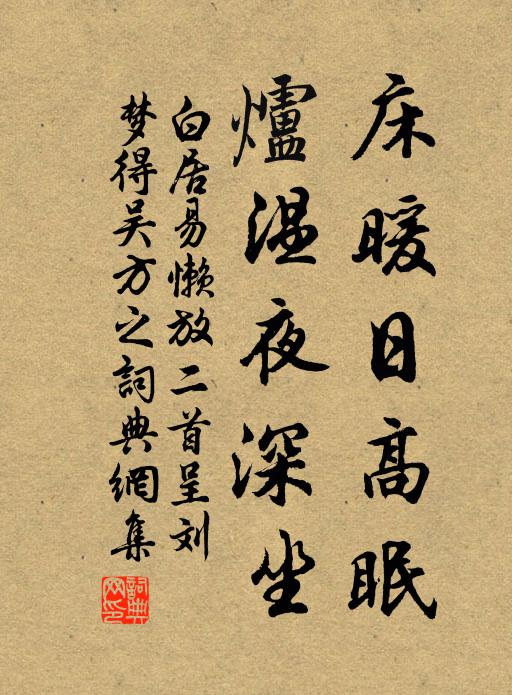 床暖日高眠
爐温夜深坐
白居易懒放二首呈刘
梦得吴方之詞典網集
詞典网印